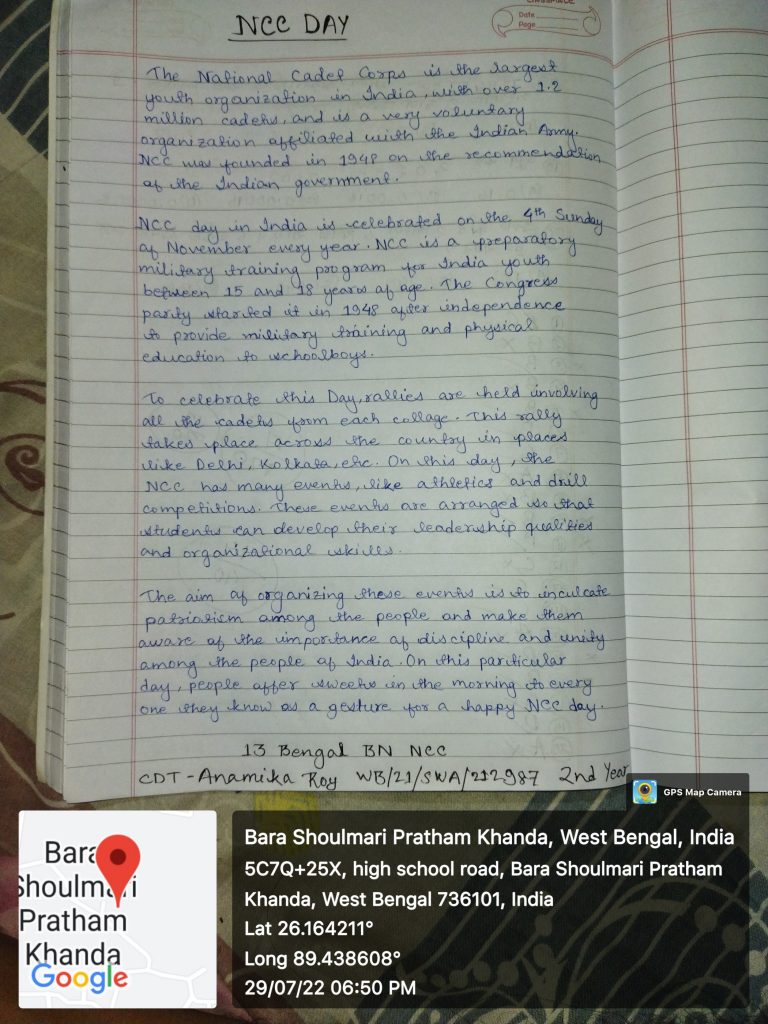 NCC DAY
Date
Page
The National Cadet Corps is the largest
youth organization in India, with over 1.2
million cadets, and is a very voluntary
organization affiliated with the Indian Army.
NCC was founded in 1948 on the recommendation
of the Indian government.
NCC day in India is celebrated on the 4th Sunday
of November every year. NCC is a preparatory
military training program for India youth
between 15 and 18 years of age. The Congress
party started it in 1948 after independence
to provide military training and physical
education to schoolboys.
To celebrate this Day, rallies are held involving
all the cadets from each collage. This rally
takes place across the country in places
like Delhi, Kolkata, etc. On this day, the
NCC has many events, like athletics and drill
competitions. These events are arranged so that
students can develop their leadership qualities
and organizational skills.
The aim of organizing these events is to inculcate
patriotism among the people and make them
aware of the importance of discipline and unity
among the people of India. On this particular
day, people offer sweets in the morning to every
one they know as a gesture for a happy NCC day.
13 Bengal BN NCC
CDT - Anamika Roy WB/21/SWA/212987 2nd Year
GPS Map Camera
Bara
Shoulmari
Pratham
Khanda
Google
Bara Shoulmari Pratham Khanda, West Bengal, India
5C7Q+25X, high school road, Bara Shoulmari Pratham
Khanda, West Bengal 736101, India
Lat 26.164211°
Long 89.438608°
29/07/22 06:50 PM